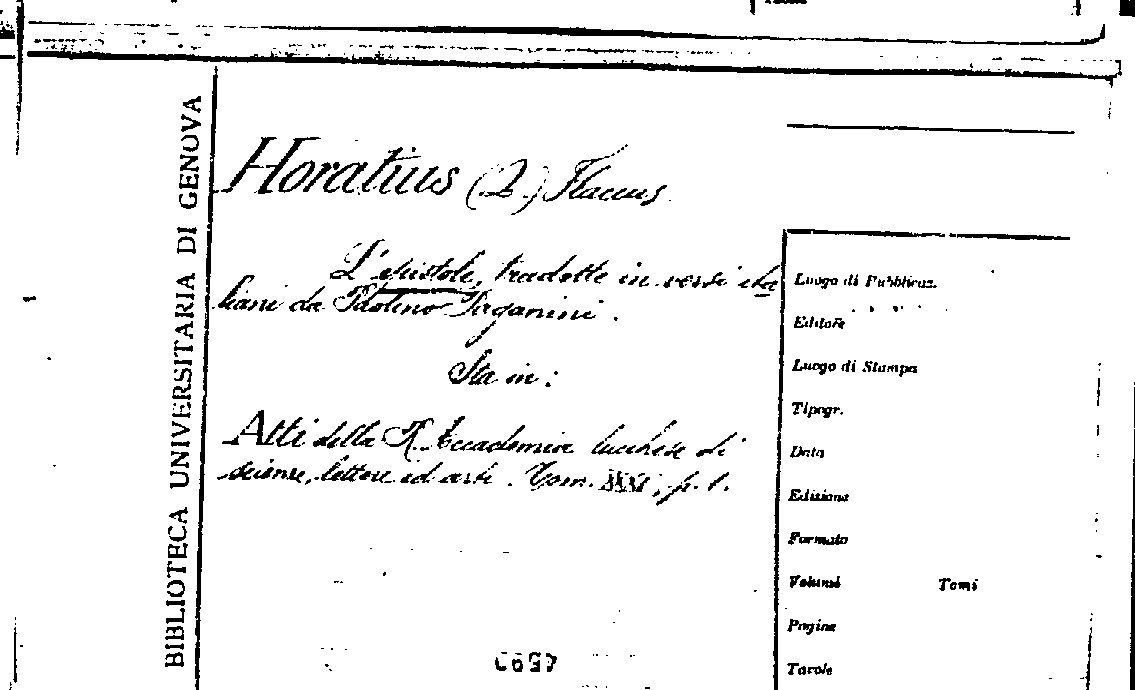 BIBLIOTECA UNIVERSITARIA DI GENOVA
Horatius (Q.) Flaccus
L'epistole, tradotte in versi ita
liani da Paolino Paganini.
Sta in:
Atti della R. Accademia lucchese di
scienze, lettere ed arti. Tom. XXXI, p. 1.
Luogo di Pubblicaz.
Editore
Luogo di Stampa
Tipogr.
Data
Edizione
Formato
Volumi Tomi
Pagine
Tavole